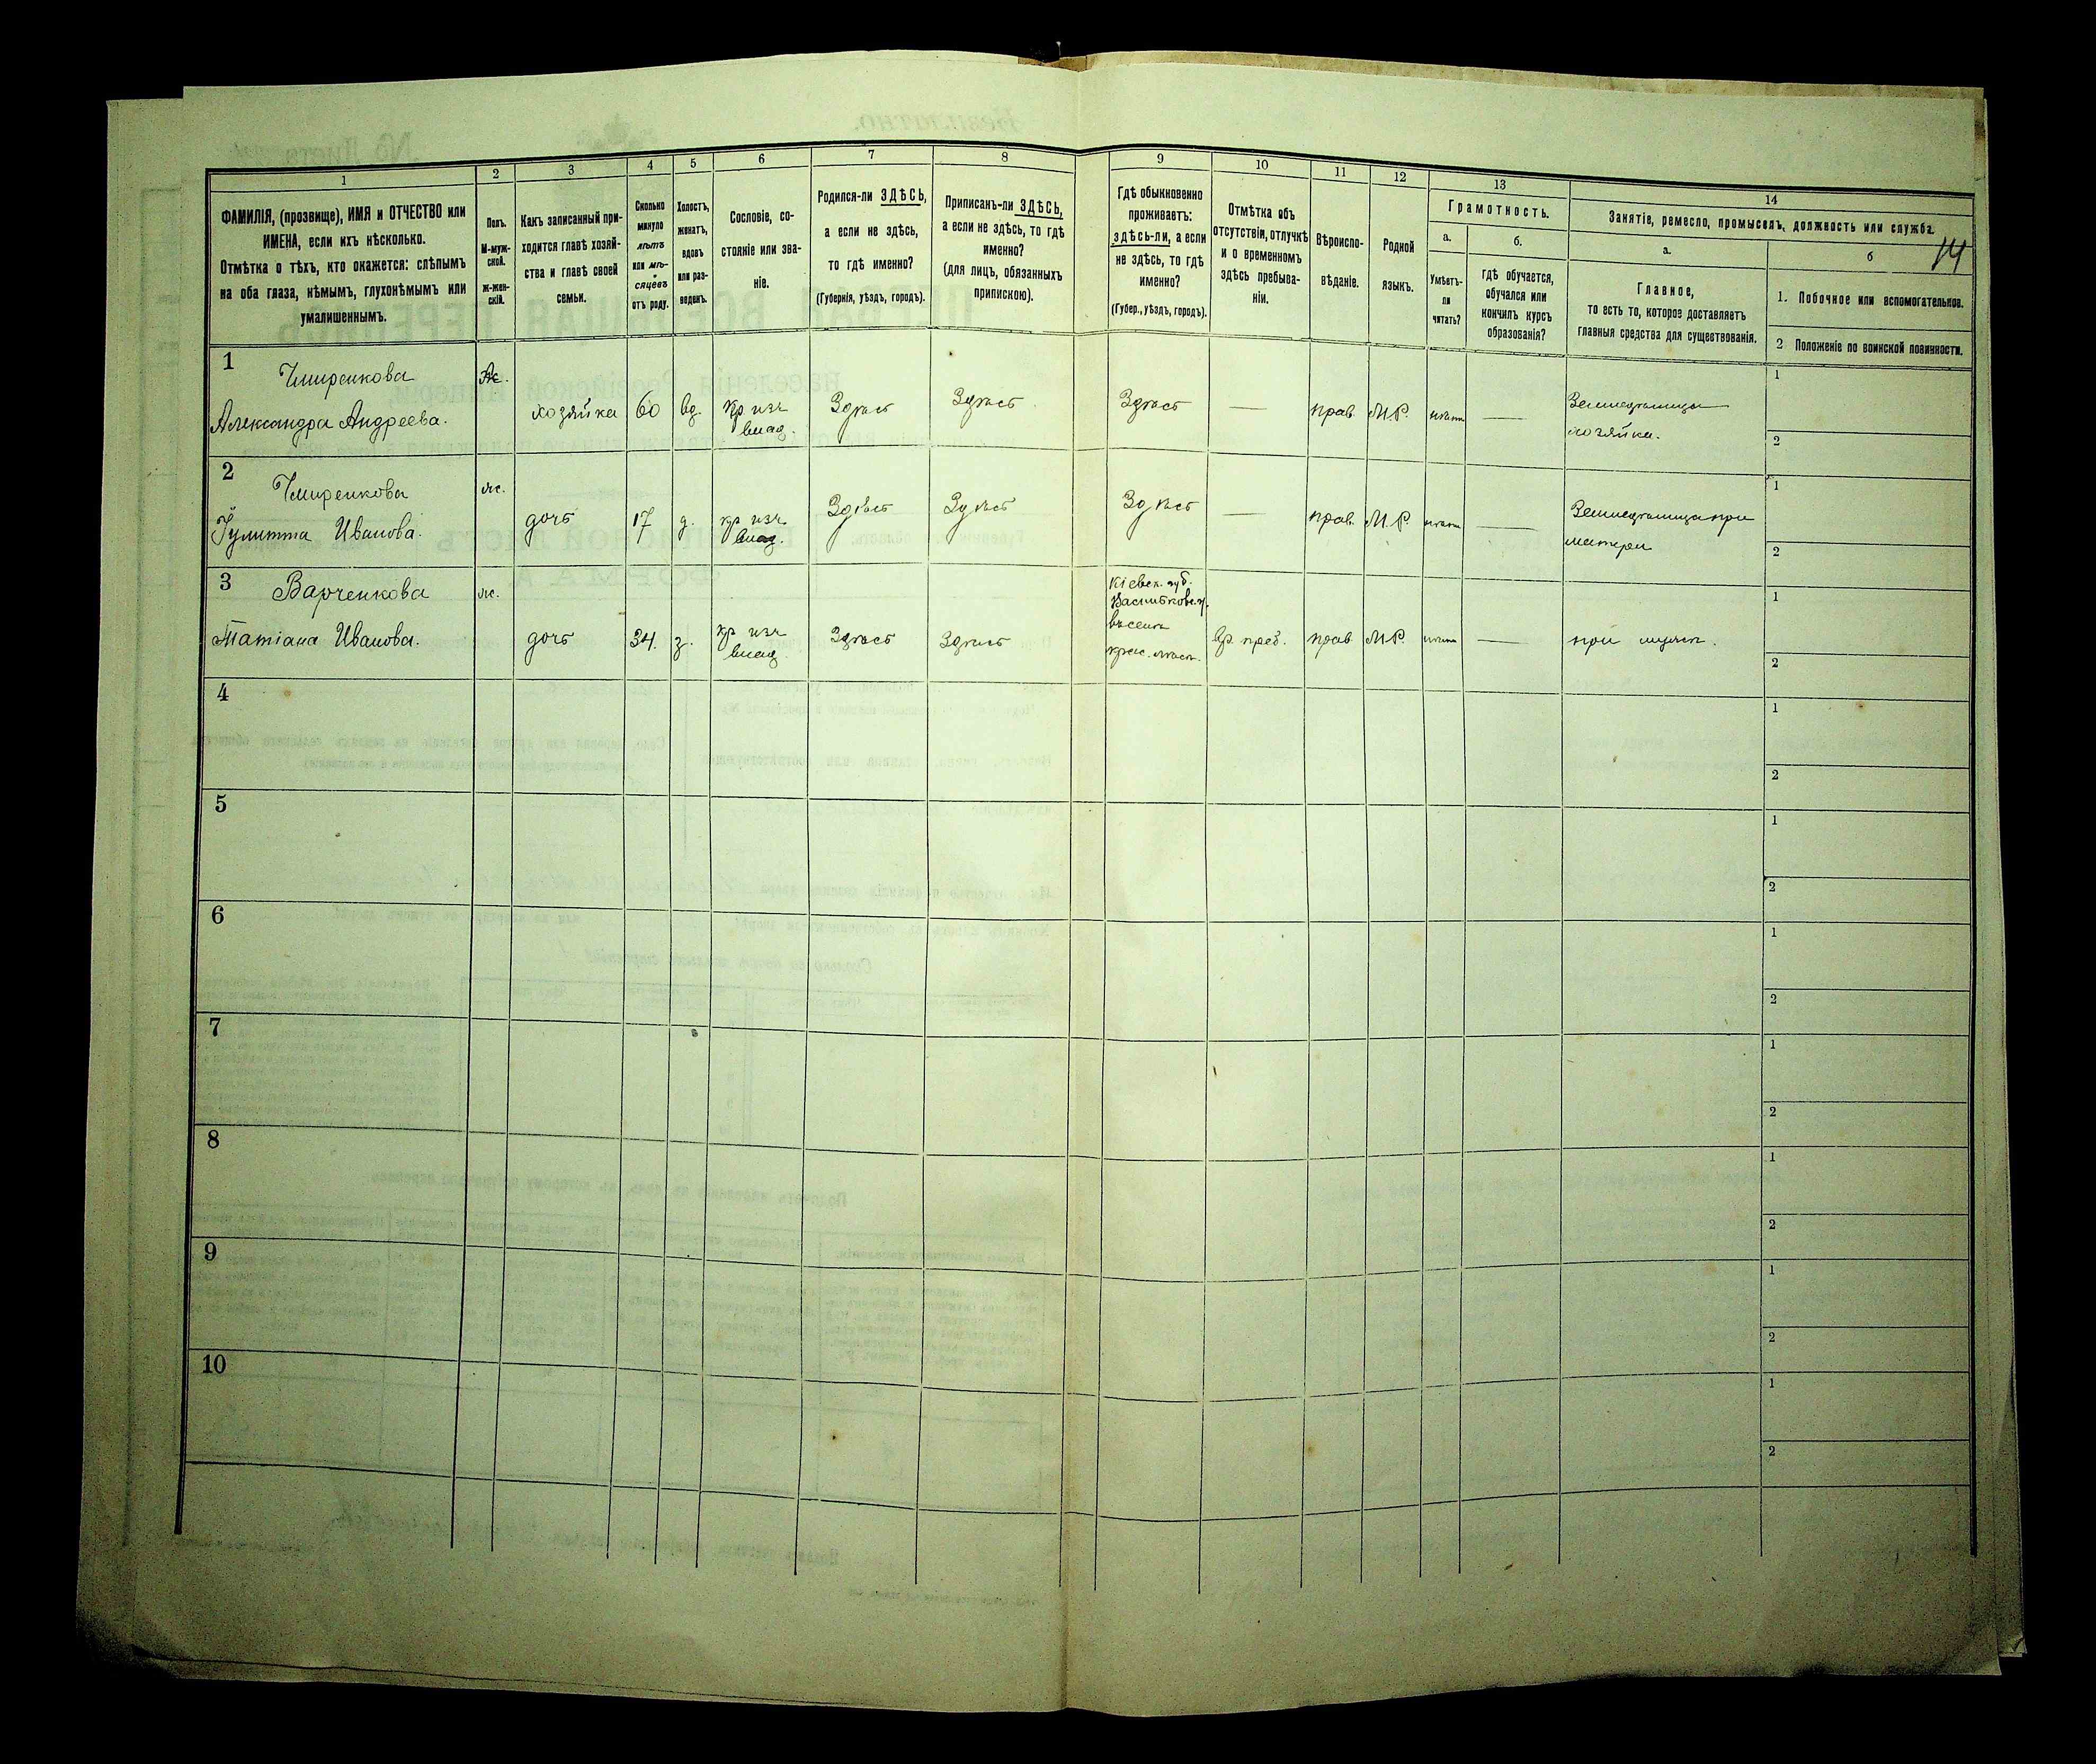 1
2
3
4
5
6
7
8
ФАМИЛІЯ, (прозвище), ИМЯ и ОТЧЕСТВО или
ИМЕНА, если ихъ нѣсколько.
Отмѣтка о тѣхъ, кто окажется: слѣпымъ
на оба глаза, нѣмымъ, глухонѣмымъ или
умалишеннымъ.
Полъ.
М-муж-
ской.
ж-жен-
скій.
Какъ записанный при-
ходится главѣ хозяй-
ства и главѣ своей
семьи.
Сколько
минуло
лѣтъ
или мѣ-
сяцевъ
отъ роду.
Холостъ,
женатъ,
вдовъ
или раз-
веденъ.
Сословіе, со-
стояніе или зва-
ніе.
Родился-ли ЗДѢСЬ,
а если не здѣсь,
то гдѣ именно?
(Губернія, уѣздъ, городъ).
Приписанъ-ли ЗДѢСЬ,
а если не здѣсь, то гдѣ
именно?
(для лицъ, обязанныхъ
припискою).
9
10
11
12
13
14
Гдѣ обыкновенно
проживаетъ:
здѣсь-ли, а если
не здѣсь, то гдѣ
именно?
(Губер., уѣздъ, городъ).
Отмѣтка объ
отсутствіи, отлучкѣ
и о временномъ
здѣсь пребыва-
ніи.
Вѣроиспо-
вѣданіе.
Родной
языкъ.
Грамотность.
а.
б.
Умѣетъ-
ли
читать?
гдѣ обучается,
обучался или
кончилъ курсъ
образованія?
Занятіе, ремесло, промыселъ, должность или служба.
14
а.
б
Главное,
то есть то, которое доставляетъ
главныя средства для существованія.
1. Побочное или вспомогательное.
2 Положеніе по воинской повинности.
1
Александра Андреева.
ж.
хозяйка
60
вд.
кр. изъ
влад.
Здѣсь
Здѣсь
Здѣсь
—
прав.
М.Р.
нѣтъ
—
Земледѣлица
хозяйка.
1
2
2
Іулитта Иванова.
ж.
дочь
17
д.
кр. изъ
влад.
Здѣсь
Здѣсь
Здѣсь
—
прав.
М.Р.
нѣтъ
—
Земледѣлица при
матери
1
2
3
Варченкова
Татіана Иванова.
ж.
дочь
34.
з.
кр. изъ
влад.
Здѣсь
Здѣсь
Кіевск. губ.
вр. преб.
прав.
М.Р.
нѣтъ
—
при мужѣ.
1
2
4
1
2
5
1
2
6
1
2
7
1
2
8
1
2
9
1
2
10
1
2